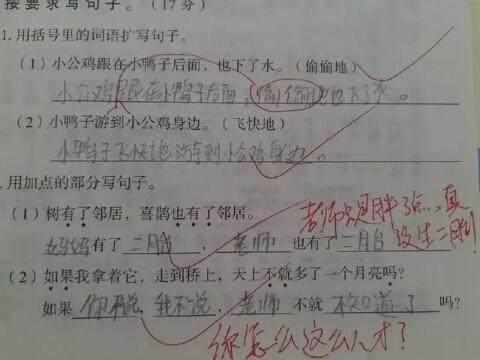 按要求写句子。(17分)
1.用括号里的词语扩写句子。
(1)小公鸡跟在小鸭子后面,也下了水。(偷偷地)
小公鸡跟在小鸭子后面,偷偷地也下了水。
(2)小鸭子游到小公鸡身边。(飞快地)
小鸭子飞快地游到小公鸡身边。
.用加点的部分写句子。
(1)树有了邻居,喜鹊也有了邻居。
妈妈有了二月台,老师也有了二月台
老师只是胖了点,真没生二胎!
(2)如果我拿着它,走到桥上,天上不就多了一个月亮吗?
如果你不说,我不说,老师不就不知道了吗?
你怎么这么人才?